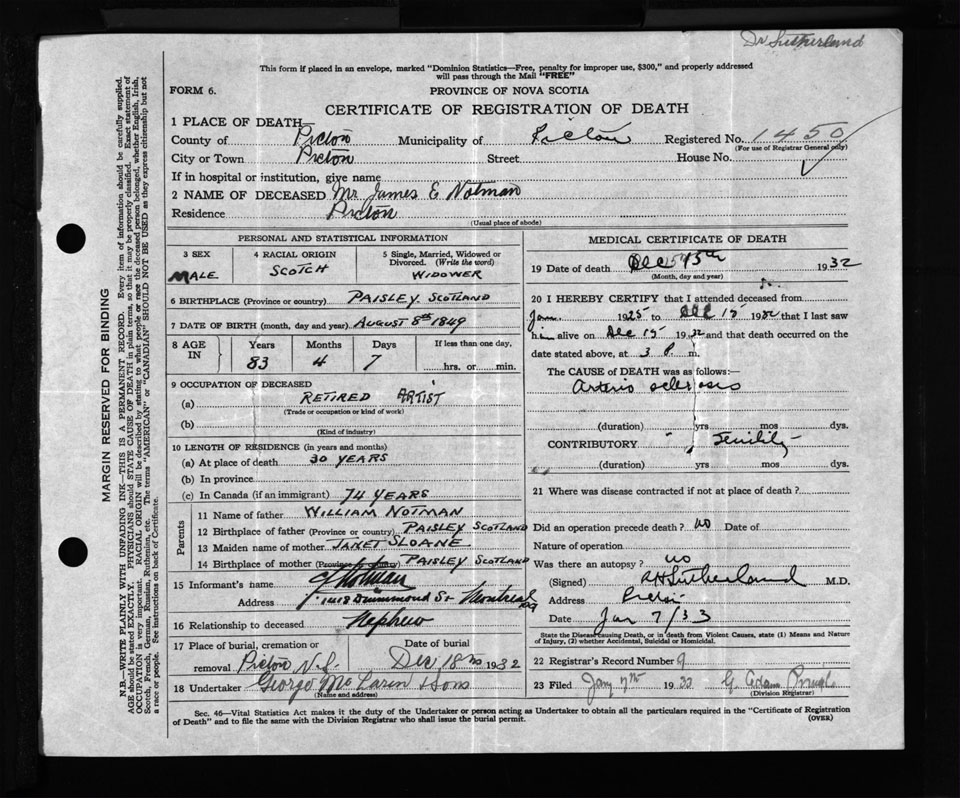 Dr Sutherland
This form if placed in an envelope, marked "Dominion Statistics—Free, penalty for improper use, $300," and properly addressed
will pass through the Mail "FREE"
FORM 6. PROVINCE OF NOVA SCOTIA
CERTIFICATE OF REGISTRATION OF DEATH
1 PLACE OF DEATH—
County of Pictou Municipality of Pictou Registered No. 1450
(For use of Registrar General only)
City or Town Pictou Street House No.
If in hospital or institution, give name
2 NAME OF DECEASED Mr James E Notman
Residence Pictou
(Usual place of abode)
PERSONAL AND STATISTICAL INFORMATION
3 SEX 4 RACIAL ORIGIN 5 Single, Married, Widowed or
Divorced. (Write the word)
MALE SCOTCH WIDOWER
6 BIRTHPLACE (Province or country) PAISLEY SCOTLAND
7 DATE OF BIRTH (month, day and year) AUGUST 8th 1849
8 AGE IN Years Months Days If less than one day,
83 4 7 hrs. or min.
9 OCCUPATION OF DECEASED
(a) RETIRED ARTIST
(Trade or occupation or kind of work)
(b)
(Kind of industry)
10 LENGTH OF RESIDENCE (in years and months)
(a) At place of death 30 YEARS
(b) In province
(c) In Canada (if an immigrant) 74 YEARS
Parents
11 Name of father WILLIAM NOTMAN
12 Birthplace of father (Province or country) PAISLEY SCOTLAND
13 Maiden name of mother JANET SLOANE
14 Birthplace of mother (Province or country) PAISLEY SCOTLAND
15 Informant's name Notman
Address 1418 Drummond St Montreal
16 Relationship to deceased Nephew
17 Place of burial, cremation or Date of burial
removal Pictou N.S. Dec 18 1932
18 Undertaker George McLaren & Sons
(Name and address)
MEDICAL CERTIFICATE OF DEATH
19 Date of death Dec 15th 1932
(Month, day and year)
20 I HEREBY CERTIFY that I attended deceased from
Jan. 1925 to Dec 15 1932 that I last saw
him alive on Dec 15 1932 and that death occurred on the
date stated above, at 3 P. m.
The CAUSE OF DEATH was as follows:—
Arterio sclerosis
(duration) yrs mos dys.
CONTRIBUTORY Senility
(duration) yrs mos dys.
21 Where was disease contracted if not at place of death?
Did an operation precede death? no Date of
Nature of operation
Was there an autopsy? no
(Signed) Sutherland M.D.
Address Pictou
Date Jan 7/33
State the Disease causing Death, or in death from Violent Causes, state (1) Means and Nature
of Injury, (2) whether Accidental, Suicidal or Homicidal.
22 Registrar's Record Number 9
23 Filed Jany 7th 1933 G. Adam
(Division Registrar)
Sec. 46—Vital Statistics Act makes it the duty of the Undertaker or person acting as Undertaker to obtain all the particulars required in the "Certificate of Registration
of Death" and to file the same with the Division Registrar who shall issue the burial permit. (OVER)
MARGIN RESERVED FOR BINDING
N.B.—WRITE PLAINLY WITH UNFADING INK—THIS IS A PERMANENT RECORD. Every item of information should be carefully supplied.
AGE should be stated EXACTLY. PHYSICIANS should STATE CAUSE OF DEATH in plain terms, so that it may be properly classified. Exact statement of
OCCUPATION is very important. RACIAL ORIGIN will be described by stating to what people or race the deceased person belonged, whether English, Irish,
Scotch, French, German, Russian, Ruthenian, etc. The terms "AMERICAN" or "CANADIAN" SHOULD NOT BE USED as they express citizenship but not
a race or people. See instructions on back of Certificate.